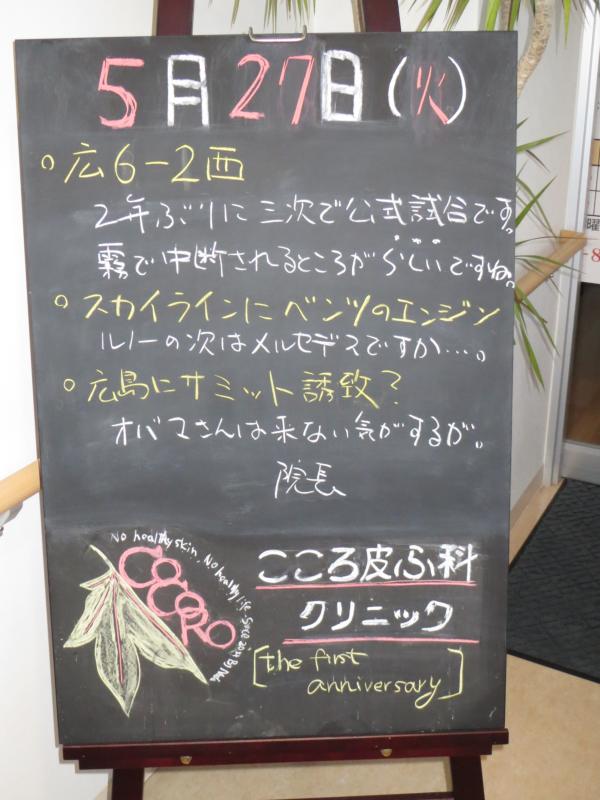 5月27日(火)
○広6-2西
2年ぶりに三次で公式試合です。
霧で中断されるところがらしいですね。
○スカイラインにベンツのエンジン
ルノーの次はメルセデスですか…。
○広島にサミット誘致?
オバマさんは来ない気がするが。
院長
No healthy skin, No healthy life. Since 2011
COCORO
こころ皮ふ科
クリニック
[the first
anniversary]